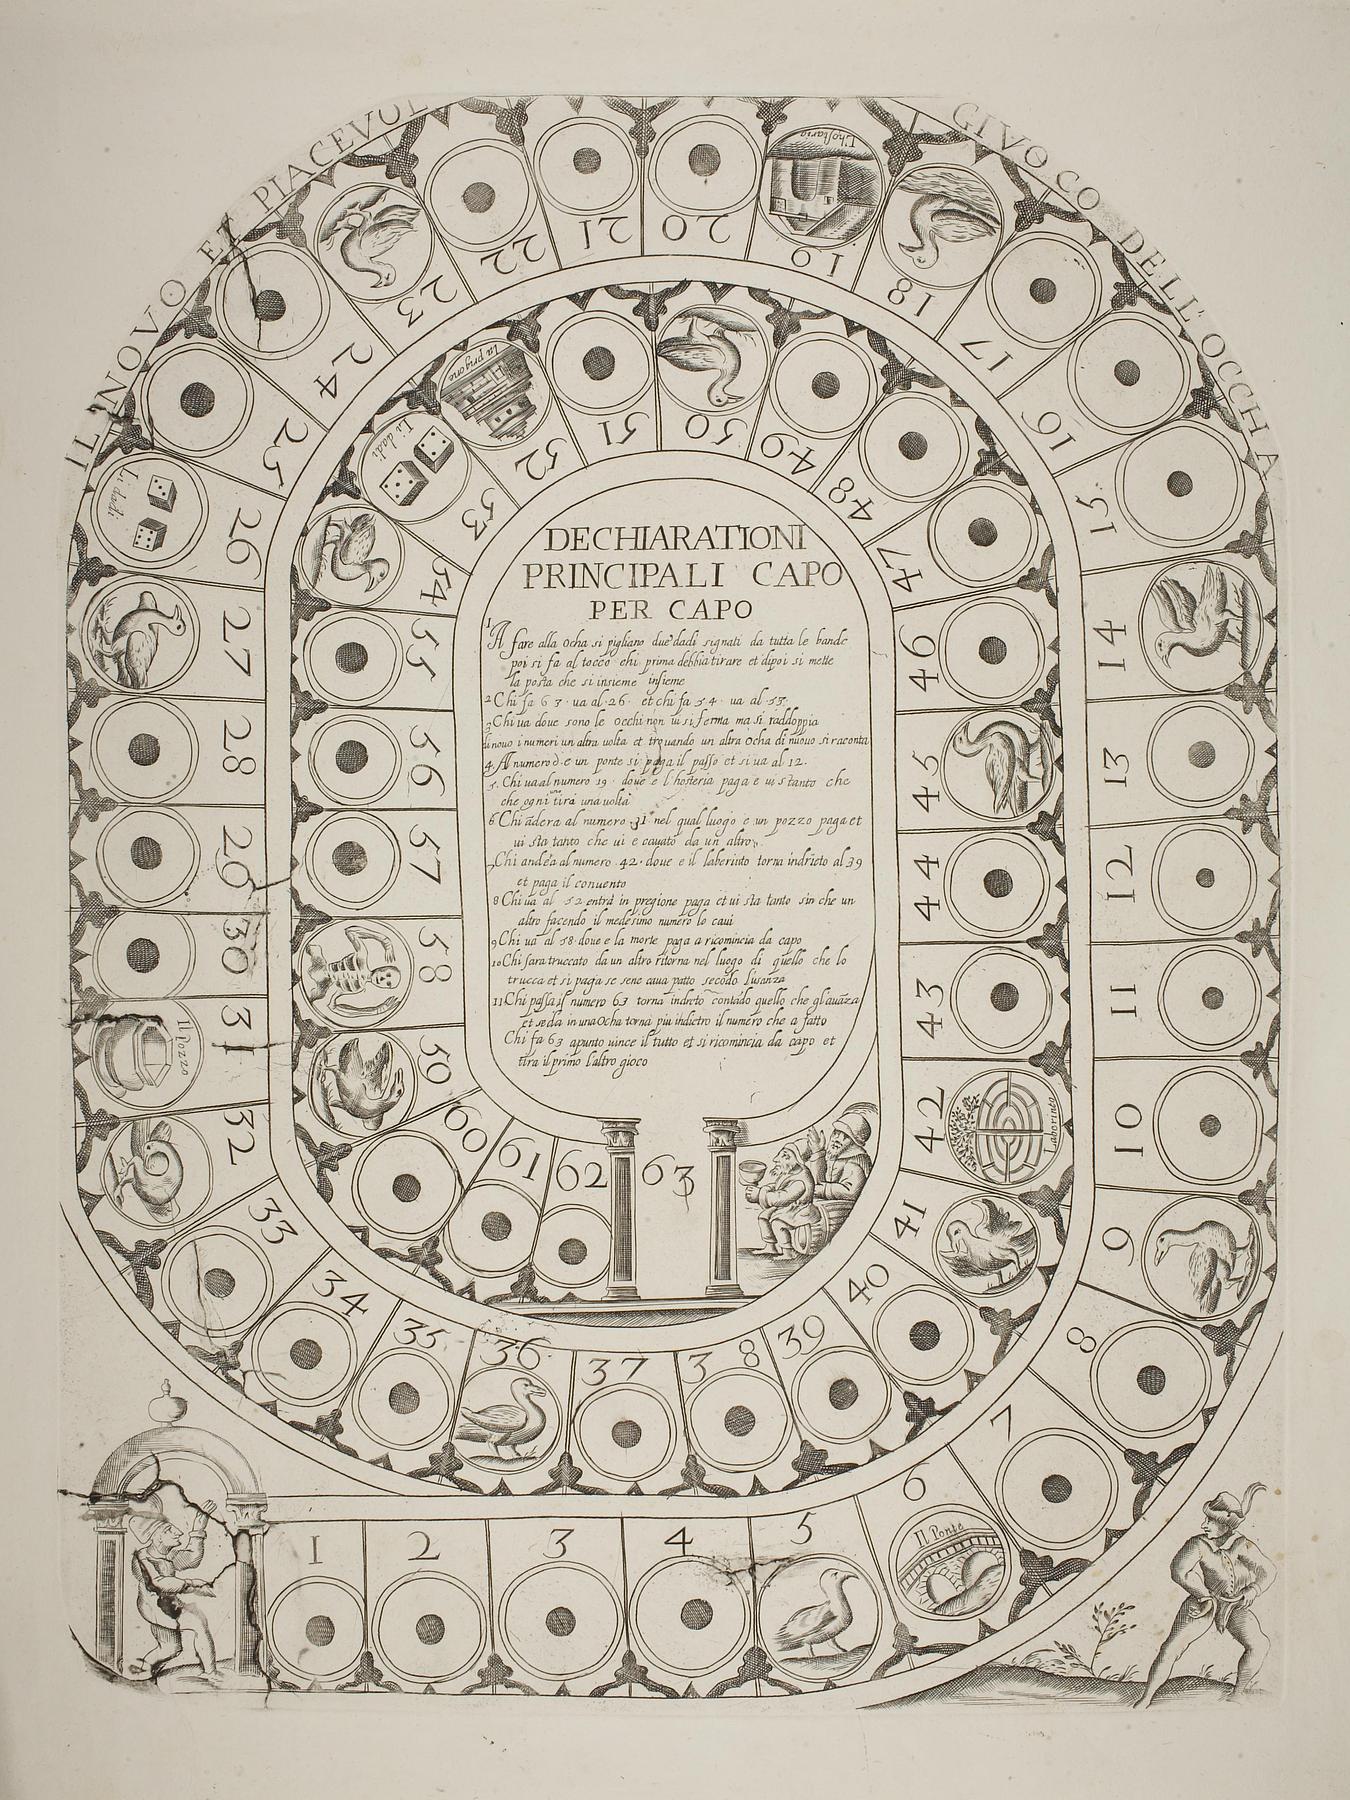 IL NOVO ET PIACEVOL
GIVOCO DELL' OCCHA
DECHIARATIONI
PRINCIPALI CAPO
PER CAPO
1 A fare alla ocha si pigliano due dadi signati da tutta le bande
poi si fa al tocco chi prima debbia tirare et dipoi si mette
la posta che si insieme insieme
2 Chi fa 6 3 · ua al · 26 · et chi fa 5 4 · ua al · 53 ·
3 Chi ua doue sono le occhi non ui si ferma ma si raddoppia
di nouo i numeri un altra uolta et trouando un altra ocha di nuouo si raconta
4 Al numero 6 · e un ponte si paga il passo et si ua al 12 ·
5 · Chi ua al numero 19 · doue e l hosteria paga e ui sta tanto che
che ogni un tira una uolta
6 Chi ãdera al numero · 31 nel qual luogo e un pozzo paga et
ui sta tanto che ui e cauato da un altro ·
7 Chi andera al numero · 42 · doue e il laberinto torna indrieto al 39
et paga il conuento
8 Chi ua al 52 entra in pregione paga et ui sta tanto sin che un
altro facendo il medesimo numero lo caui
9 Chi ua al 58 doue e la morte paga a ricomincia da capo
10 Chi sara truccato da un altro ritorna nel luogo di quello che lo
trucca et si paga se sene caua patto secõdo l'usanza
11 Chi passa il numero 63 torna indreto contãdo quello che gl auãza
et se da in una ocha torna piu indietro il numero che a fatto
Chi fa 63 apunto uince il tutto et si ricomincia da capo et
tira il primo l'altro gioco
1
2
3
4
5
6
Il Ponte
7
8
9
10
11
12
13
14
15
16
17
18
19
L'hostaria
20
21
22
23
24
25
26
Li dadi
27
28
29
30
31
Il Pozzo
32
33
34
35
36
37
38
39
40
41
42
laborinto
43
44
45
46
47
48
49
50
51
52
La prigone
53
Li dadi
54
55
56
57
58
59
60
61
62
63